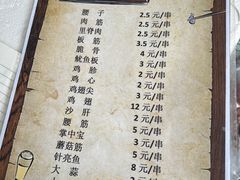 腰 子 2.5 元/串
肉 筋 2.5 元/串
里脊肉 2.5 元/串
板 筋 3.5 元/串
脆 骨 4 元/串
鱿鱼板 3 元/串
鸡 胗 4 元/串
鸡 心 2 元/串
鸡翅尖 3 元/串
鸡 翅 12 元/串
沙 肝 2 元/串
腰 筋 5 元/串
掌中宝 5 元/串
蘑菇筋 5 元/串
针亮鱼 8 元/串
大 蒜 2 元/串